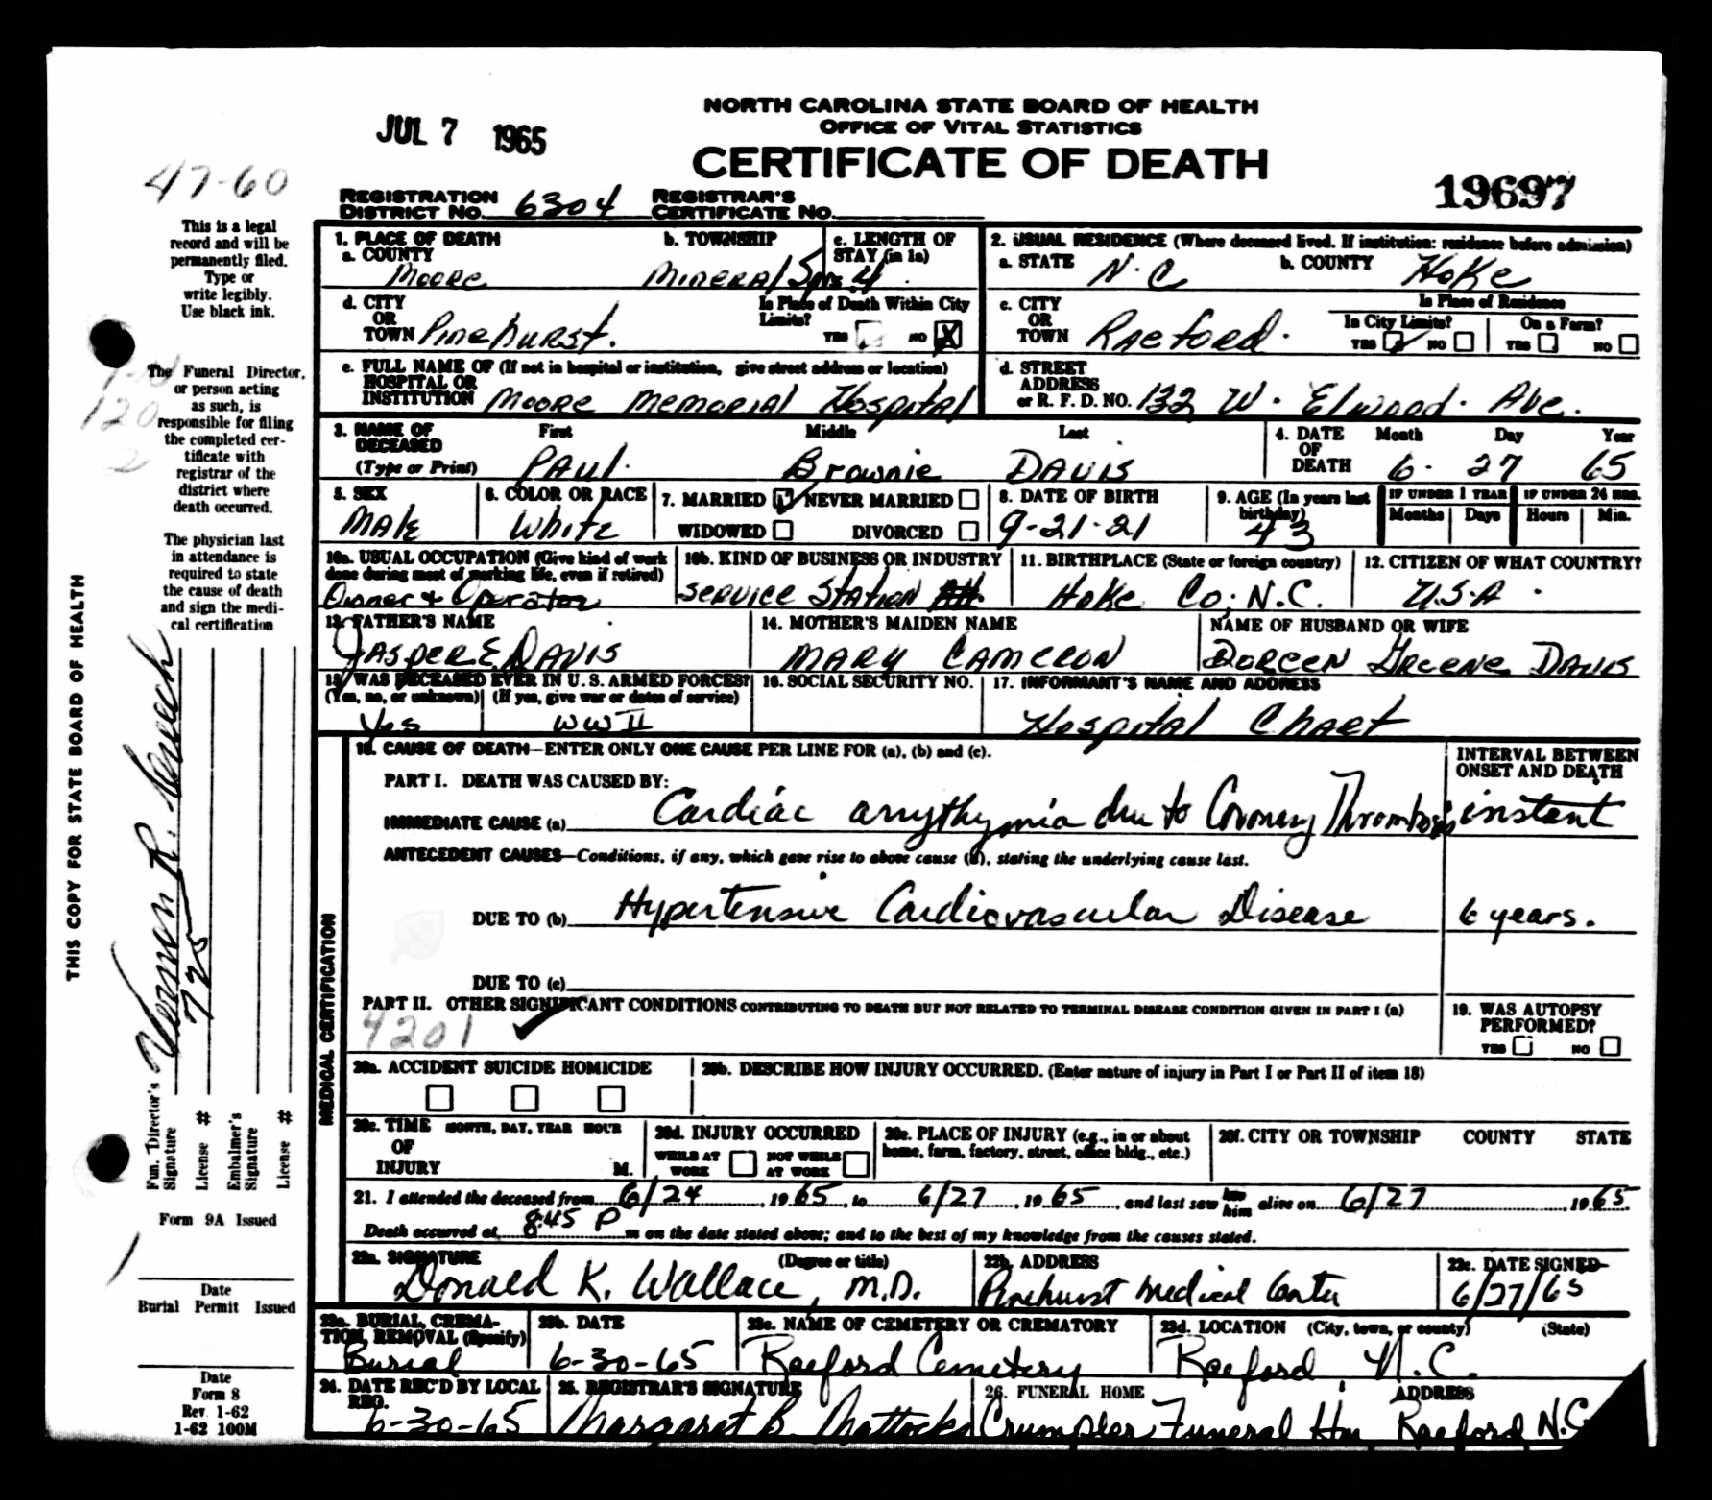 NORTH CAROLINA STATE BOARD OF HEALTH
OFFICE OF VITAL STATISTICS
CERTIFICATE OF DEATH
JUL 7 1965
47-60
19697
REGISTRATION DISTRICT NO. 6304 REGISTRAR'S CERTIFICATE NO.
This is a legal
record and will be
permanently filed.
Type or
write legibly.
Use black ink.
The Funeral Director,
or person acting
as such, is
responsible for filing
the completed cer-
tificate with
registrar of the
district where
death occurred.
The physician last
in attendance is
required to state
the cause of death
and sign the medi-
cal certification
120
2
THIS COPY FOR STATE BOARD OF HEALTH
Fun. Director's Signature Vernon R.
License # 725
Embalmer's Signature
License #
Form 9A Issued
Date
Burial Permit Issued
Date
Form 8
Rev. 1-62
1-62 100M
1. PLACE OF DEATH
a. COUNTY Moore
b. TOWNSHIP Mineral Spgs
c. LENGTH OF STAY (in 1a) 4
2. USUAL RESIDENCE (Where deceased lived. If institution: residence before admission)
a. STATE N.C b. COUNTY Hoke
d. CITY OR TOWN Pinehurst.
Is Place of Death Within City Limits? YES NO X
c. CITY OR TOWN Raeford.
Is Place of Residence
In City Limits? YES NO On a Farm? YES NO
e. FULL NAME OF (If not in hospital or institution, give street address or location)
HOSPITAL OR INSTITUTION Moore Memorial Hospital
d. STREET ADDRESS or R. F. D. NO. 132 W. Elwood. Ave.
3. NAME OF DECEASED (Type or Print) First Middle Last
Paul Brownie Davis
4. DATE OF DEATH Month Day Year
6. 27 65
5. SEX Male
6. COLOR OR RACE White
7. MARRIED NEVER MARRIED
WIDOWED DIVORCED
8. DATE OF BIRTH 9-21-21
9. AGE (In years last birthday) 43
IF UNDER 1 YEAR Months Days
IF UNDER 24 HRS. Hours Min.
10a. USUAL OCCUPATION (Give kind of work done during most of working life, even if retired)
Owner & Operator
10b. KIND OF BUSINESS OR INDUSTRY
Service Station
11. BIRTHPLACE (State or foreign country)
Hoke Co; N.C.
12. CITIZEN OF WHAT COUNTRY?
U.S.A
13. FATHER'S NAME
Jasper E. Davis
14. MOTHER'S MAIDEN NAME
Mary Cameron
NAME OF HUSBAND OR WIFE
Doreen Greene Davis
15. WAS DECEASED EVER IN U. S. ARMED FORCES?
(Yes, no, or unknown) (If yes, give war or dates of service)
Yes WW II
16. SOCIAL SECURITY NO.
17. INFORMANT'S NAME AND ADDRESS
Hospital Chart
MEDICAL CERTIFICATION
18. CAUSE OF DEATH—ENTER ONLY ONE CAUSE PER LINE FOR (a), (b) and (c).
INTERVAL BETWEEN ONSET AND DEATH
PART I. DEATH WAS CAUSED BY:
IMMEDIATE CAUSE (a) Cardiac arrythymia due to Coronary Thrombosis instant
ANTECEDENT CAUSES—Conditions, if any, which gave rise to above cause (a), stating the underlying cause last.
DUE TO (b) Hypertensive Cardiovascular Disease 6 years.
DUE TO (c)
PART II. OTHER SIGNIFICANT CONDITIONS CONTRIBUTING TO DEATH BUT NOT RELATED TO TERMINAL DISEASE CONDITION GIVEN IN PART I (a)
4201
19. WAS AUTOPSY PERFORMED?
YES NO
20a. ACCIDENT SUICIDE HOMICIDE
20b. DESCRIBE HOW INJURY OCCURRED. (Enter nature of injury in Part I or Part II of item 18)
20c. TIME OF INJURY MONTH, DAY, YEAR HOUR M.
20d. INJURY OCCURRED WHILE AT WORK NOT WHILE AT WORK
20e. PLACE OF INJURY (e.g., in or about home, farm, factory, street, office bldg., etc.)
20f. CITY OR TOWNSHIP COUNTY STATE
21. I attended the deceased from 6/24 1965 to 6/27 1965 and last saw her him alive on 6/27 1965.
Death occurred at 8:45 P m on the date stated above; and to the best of my knowledge from the causes stated.
22a. SIGNATURE (Degree or title)
Donald K. Wallace, M.D.
22b. ADDRESS
Pinehurst Medical Center
22c. DATE SIGNED
6/27/65
23a. BURIAL, CREMATION, REMOVAL (Specify)
Burial
23b. DATE
6-30-65
23c. NAME OF CEMETERY OR CREMATORY
Raeford Cemetery
23d. LOCATION (City, town, or county) (State)
Raeford, N.C.
24. DATE REC'D BY LOCAL REG.
6-30-65
25. REGISTRAR'S SIGNATURE
Margaret B. Mattocks
26. FUNERAL HOME ADDRESS
Crumpler Funeral Hm, Raeford N.C